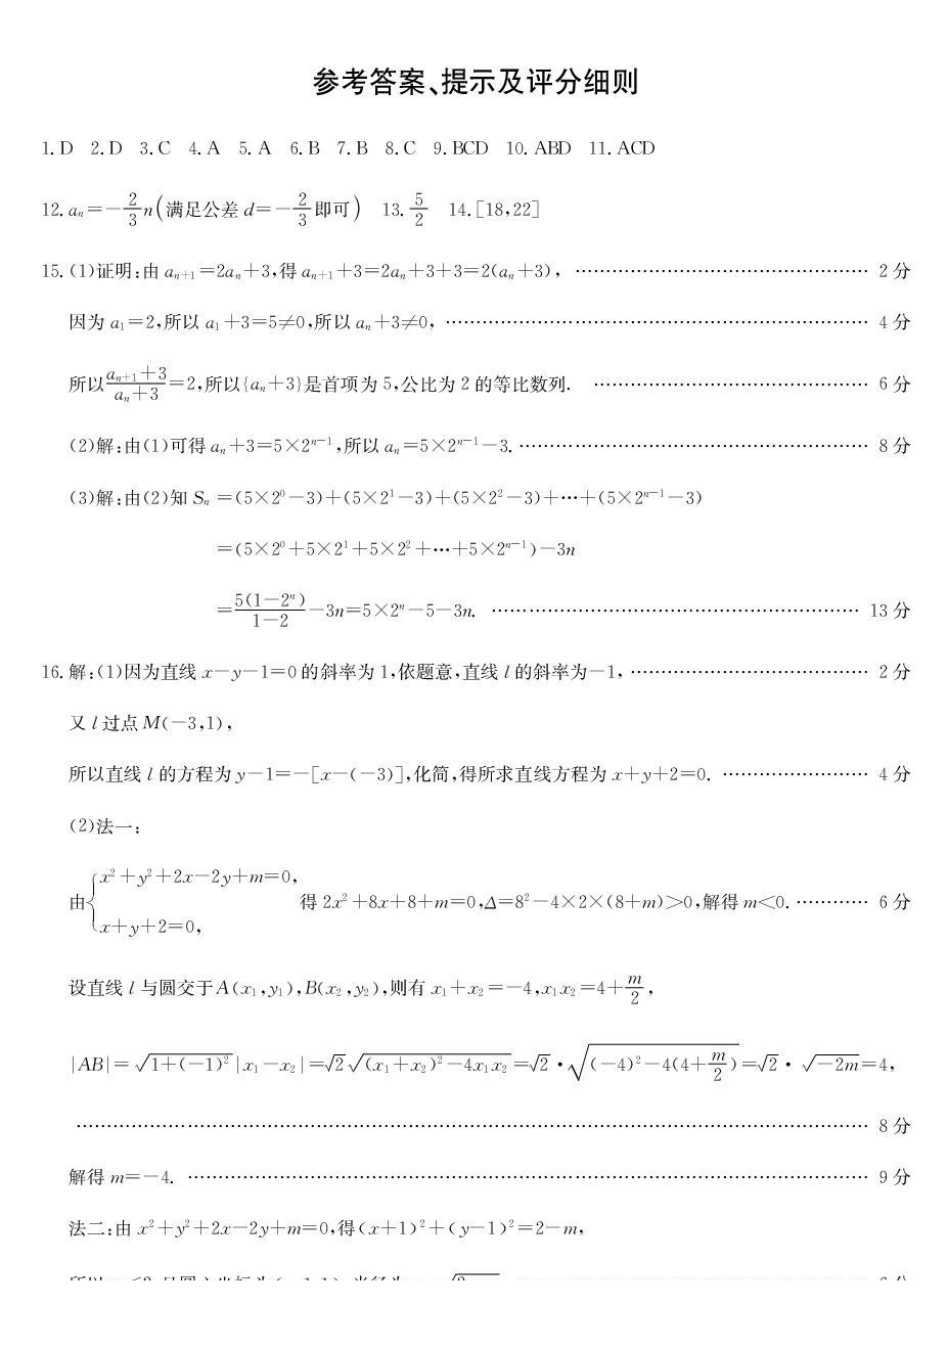 参考答案、提示及评分细则
1. D 2. D 3. C 4. A 5. A 6. B 7. B 8. C 9. BCD 10. ABD 11. ACD
12. aₙ=-2/3n(满足公差 d=-2/3即可) 13. 5/2 14. [18,22]
15. (1)证明:由 aₙ₊₁=2aₙ+3,得 aₙ₊₁+3=2aₙ+3+3=2(aₙ+3), ………… 2 分
因为 a₁=2,所以 a₁+3=5≠0,所以 aₙ+3≠0, ………… 4 分
所以(aₙ₊₁+3)/(aₙ+3)=2,所以{aₙ+3}是首项为 5,公比为 2 的等比数列. ………… 6 分
(2)解:由(1)可得 aₙ+3=5×2ⁿ⁻¹,所以 aₙ=5×2ⁿ⁻¹-3. ………… 8 分
(3)解:由(2)知 Sₙ=(5×2⁰-3)+(5×2¹-3)+(5×2²-3)+…+(5×2ⁿ⁻¹-3)
=(5×2⁰+5×2¹+5×2²+…+5×2ⁿ⁻¹)-3n
=5(1-2ⁿ)/(1-2)-3n=5×2ⁿ-5-3n. ………… 13 分
16. 解:(1)因为直线 x-y-1=0 的斜率为 1,依题意,直线 l 的斜率为-1, ………… 2 分
又 l 过点 M(-3,1),
所以直线 l 的方程为 y-1=-[x-(-3)],化简,得所求直线方程为 x+y+2=0. ………… 4 分
(2)法一:
由{x²+y²+2x-2y+m=0, x+y+2=0, 得 2x²+8x+8+m=0,Δ=8²-4×2×(8+m)>0,解得 m<0. ………… 6 分
设直线 l 与圆交于 A(x₁,y₁),B(x₂,y₂),则有 x₁+x₂=-4,x₁x₂=4+m/2,
|AB|=√(1+(-1)²)|x₁-x₂|=√2√((x₁+x₂)²-4x₁x₂)=√2·√((-4)²-4(4+m/2))=√2·√(-2m)=4,
………… 8 分
解得 m=-4. ………… 9 分
法二:由 x²+y²+2x-2y+m=0,得(x+1)²+(y-1)²=2-m,